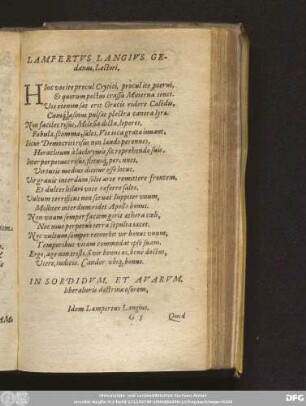 LAMPERTVS LANGIVS GE-
danus, Lectori.
HInc vos ite procul Crytici, procul ite proterui,
Et quorum pectus crassa Minerua tenet.
Vos etenim fas erit Gratis videre Castalio,
pulsat plectra canora lyra.
Non faciles risus, Milesia dicta, lepores,
Fabula, stomma, sales, Voxioca grata iuuant,
Siue Democrati risus non laudo perennes,
Heracliteum à lachrymis sic reprehendo suis.
Inter perpetuos risus, fletusq́; perennes,
Virtutis medium dicitur esse locus.
Vir grauis interdum solet arte remittere frontem,
Et dulces hilari voce referre sales.
Vultum terrificus non seruat Iuppiter vnum,
Molliter interdum ridet Apollo bonus.
Non vnum semper faciem gerit athera cœli,
Nec niue perpetuò terra sepulta iacet.
Nec vultum semper retinebit vir bonus vnum,
Temporibus vitam commodat ipse suam.
Ergo, age non tristis, si vir bonus es, bene doctus,
Vtere, iudicio. Candor vbiq́, bonus.
IN SORDIDVM, ET AVARVM,
liberalioris doctrinæ osorem,
Idem Lampertus Langius.
G 5
Quid
DFG